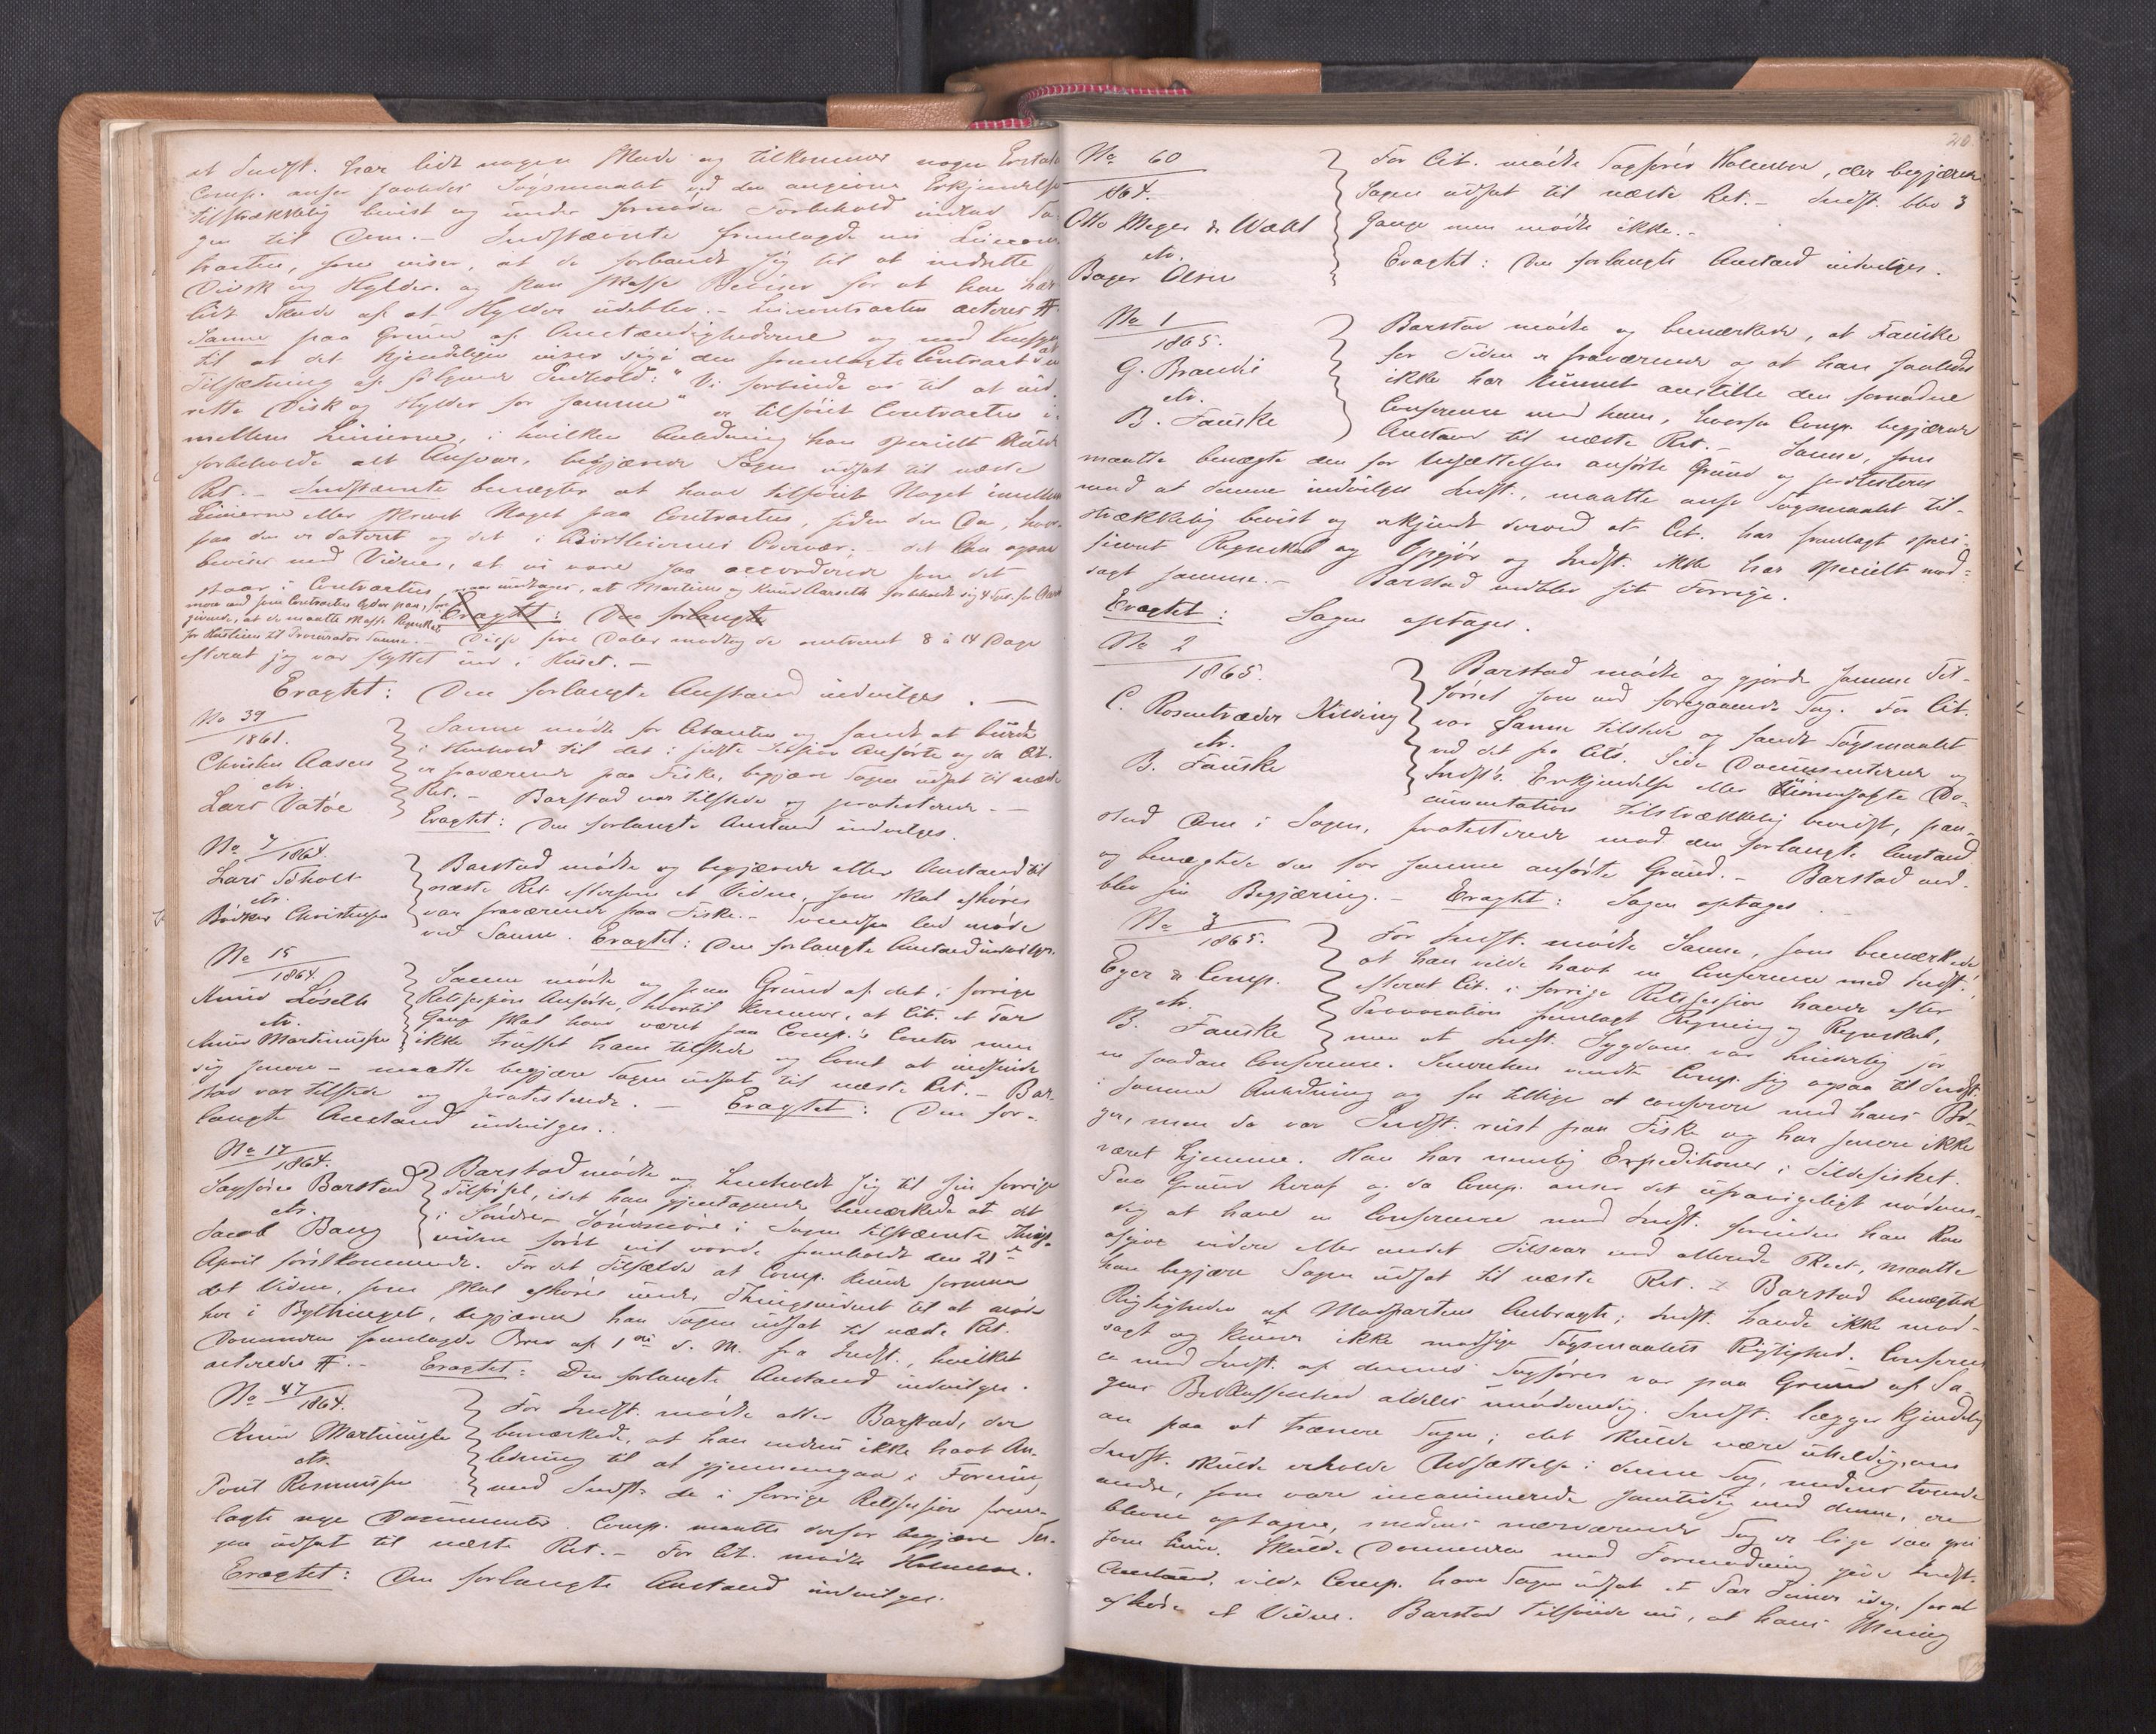 at Indst. har lidt nogen Skade og tilkommer nogen Erstatn
Comp. anser saaledes Søgsmaalet ved den angivne Erkjendelse
tilstrækkelig bevist og under fornøden Forbehold indlod Sa-
gen til Dom. – Indstævnte fremlagde nu Leiecon-
tracten, som viser, at de forbandt sig til at indrette
Disk og Hylder. og kan skaffe Beviser for at have havt
lidt Skade af at Hylder udeblev. – Leiecontracten acteres #.
Sanne paa Grund af Omstændighederne og med Hensyn
til at det kjendeligen viser sig i den fremlagte Contract at en
Tilsætning af følgende Indhold: "Vi forbinde os til at ind-
rette Disk og Hylder for samme" er tilføiet Contracten i-
mellem Linierne, i hvilken Anledning han specielt skulde
forbeholde alt Ansvar, begjærede Sagen udsat til næste
Ret. – Indstævnte benægter at have tilføiet Noget imellem
Linierne eller skrevet Noget paa Contracten, siden den Dag, hvor-
paa den er dateret og det i Overvær; – det kan ogsaa
bevises med Vidner, at vi vare saa accorderede som det
staar i Contracten undtagen, at Martinus og Knud Aarseth forbeholdt sig 4 Spd. for Aaret
mere end som Contracten lyder paa, fore-
Eragtet: Den forlangte
givende, at de maatte skaffe Regnskab
for Huslejen til Procurator Sanne. – Disse fire Daler modtog de omtrent 8 à 14 Dage
efterat jeg var flyttet ind i Huset. –
Eragtet: Den forlangte Anstand indvilges. –
No 39
1861.
Christen Aasen
ctr.
Lars Vatøe
Sanne mødte for Citanten og fandt at burde
i Henhold til det i sidste Session Anførte og da Cit.
er fraværende paa Fiske, begjære Sagen udsat til næste
Ret. – Barstad var tilstede og protesterede. –
Eragtet: Den forlangte Anstand indvilges.
No 7/1864.
Lars Tøholt
ctr.
Bødker Christensen
Barstad mødte og begjærede atter Anstand til
næste Ret eftersom et Vidne, som skal afhøres
var fraværende paa Fiske. – Svendsen lod møde
ved Sanne. Eragtet: Den forlangte Anstand indvilges.
No 15
1864.
Knud Løseth
ctr.
Knud Martinussen
Sanne mødte og paa Grund af det i forrige
Retssession Anførte, hvortil kommer, at Cit. et Par
Gang skal have været paa Comp.s Contor men
ikke truffet ham tilstede og lovet at indfinde
sig senere – maatte begjære Sagen udsat til næste Ret. – Bar-
stad var tilstede og protesterede. – Eragtet: Den for-
langte Anstand indvilges.
No 17
1864.
Sagfører Barstad
ctr.
Jacob Bang
Barstad mødte og henholdt sig til sin forrige
Tilførsel, idet han gjentagende bemærkede at det
i Søndre Søndmøre i Sagen tilstævnte Things-
vidne først vil vorde fremholdt den 21de
April førstkommende. For det Tilfælde at Comp. kunde formaa
det Vidne, som skal afhøres under Thingsvidnet til at møde
her i Bythinget, begjærer han Sagen udsat til næste Ret.
Domænen fremlagde Brev af 1ste d. M. fra Indst., hvilket
acteredes #. – Eragtet: Den forlangte Anstand indvilges.
No 47/1864.
Knud Martinussen
ctr.
Tout Rasmussen
For Indst. mødte atter Barstad, der
bemærkede, at han endnu ikke havt An-
ledning til at gjennemgaa i Forening
med Indst. de i forrige Retssession frem-
lagte nye Documenter. Comp. maatte derfor begjære Sa-
gen udsat til næste Ret. – For Cit. mødte Holmboe.
Eragtet: Den forlangte Anstand indvilges.
20
No 60
1864.
Otto Meyer & Wahl
ctr.
Bager Olsen
For Cit. mødte Sagfører Holmboe, der begjærede
Sagen udsat til næste Ret. – Indst. blev 3
Gange men mødte ikke. –
Eragtet: Den forlangte Anstand indvilges.
No 1
1865.
G. Brandi
ctr.
B. Fauske
Barstad mødte og bemærkede, at Fauske
for Tiden er fraværende og at han saaledes
ikke har kunnet anstille den fornødne
Conference med ham, hvorfor Comp. begjærede
Anstand til næste Ret. – Sanne, som
maatte benægte den for Udsættelsen anførte Grund og protestere
mod at denne indvilges Indst., maatte anse Søgsmaalet til-
strækkelig bevist og erkjendt derved at Cit. har fremlagt speci-
ficeret Regnskab og Opgjør og Indst. ikke har specielt mod-
sagt samme. – Barstad vedblev sit Forrige.
Eragtet: Sagen optages.
No 2
1865.
C. Rosentræder Kilding
ctr.
B. Fauske
Barstad mødte og gjorde samme Til-
førsel som ved foregaaende Sag. For Cit.
var Sanne tilstede og fandt Søgsmaalet
ved det fra Cit's. Side Documenterede og
Indst's. Erkjendelse eller Umodsagte Do-
cumentation tilstrækkelig beviist, paa-
stod Dom i Sagen, protesterede mod den forlangte Anstand
og benægtede den for samme anførte Grund. – Barstad ved-
blev sin Begjæring. – Eragtet: Sagen optages.
No 3
1865.
Eger & Comp.
ctr.
B. Fauske
For Indst. mødte Sanne, som bemærkede
at han vilde havt en Conference med Indst.,
efterat Cit. i forrige Retssession havde efter
Provocation fremlagt Regning og Regnskab,
men at Indst. Sygdom var hinderlig for
en saadan Conference. Imorgen vendte Comp. sig ogsaa til Indst.
i samme Anledning og for tillige at conferere med hans Bø-
ger, men da var Indst. reist paa Fiske og har senere ikke
været hjemme. Han har nemlig Expeditioner i Sildefisket.
Paa Grund heraf og da Comp. anser det ufravigeligt nødven-
dig at have en Conference med Indst. forinden han kan
afgive videre eller andet Tilsvar end allerede skeet, maatte
han begjære Sagen udsat til næste Ret. – Barstad benægtede
Rigtigheden af Modpartens Anbragte; Indst. havde ikke mod-
sagt og kunde ikke modsige Søgsmaalets Rigtighed. Conferen-
ce med Indst. af dennes Sagfører var paa Grund af Sa-
gens Beskaffenhed aldeles unødvendig. Indst. lægger kjendelig
an paa at trænere Sagen; det skulde være uheldig, om
Indst. skulde erholde Udsættelse i denne Sag, medens tvende
andre, som vare incaminerede samtidig med denne, ere
blevne optagne, medens nærværende Sag er lige saa grei
som hine. Skulde Domænen mod Formodning give Indst.
Anstand, vilde Comp. have Sagen udsat et Par Timer idag, for at
afhøre et Vidne. Barstad tilføiede nu, at hans Mening